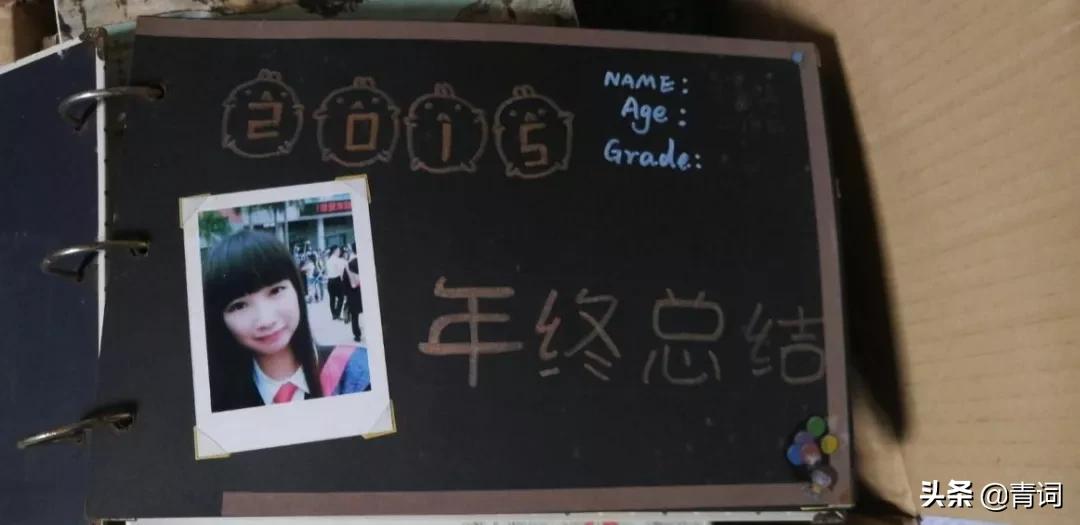 2015
NAME:
Age:
Grade:
年终总结
头条 @青词